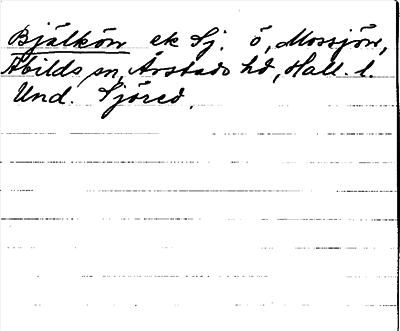 Bjälkön ek Sj. ö, Mossjön,
Abilds sn, Årstads hd, Hall. l.
Und. Sjöred.